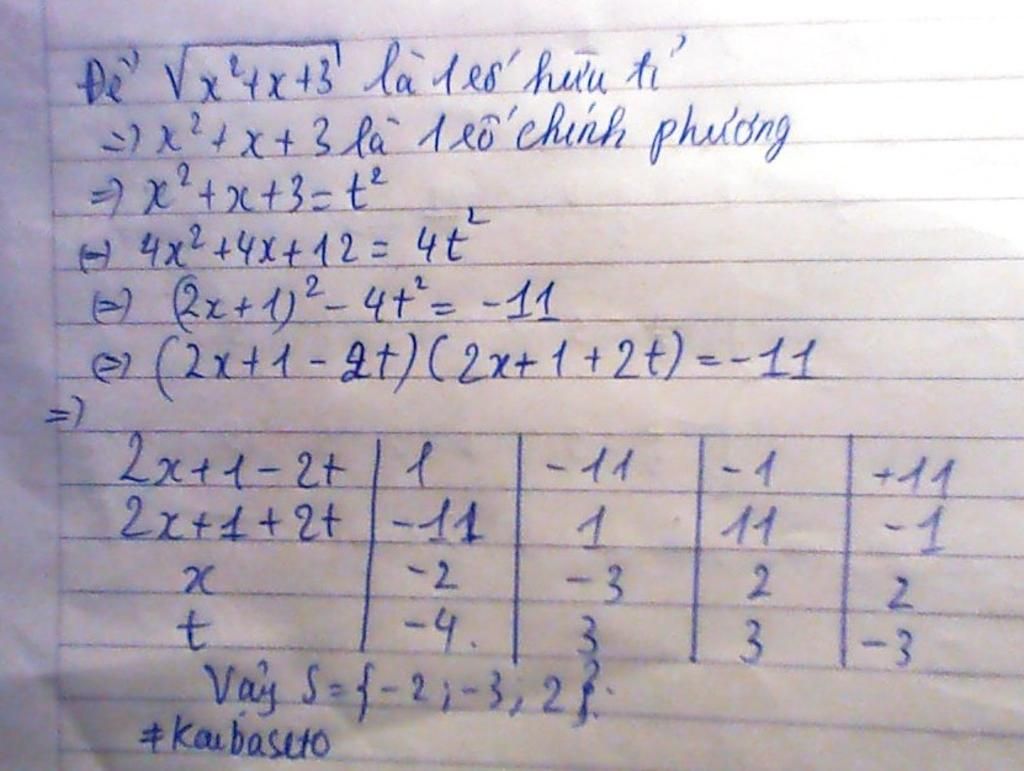 Để √x²+x+3 là 1 số hữu tỉ
=) x²+x+3 là 1 số chính phương
=) x²+x+3=t²
(=) 4x²+4x+12= 4t²
(=) (2x+1)²-4t²=-11
(=) (2x+1-2t)(2x+1+2t)=-11
=)
2x+1-2t | 1 | -11 | -1 | +11
2x+1+2t | -11 | 1 | 11 | -1
x | -2 | -3 | 2 | 2
t | -4. | 3 | 3 | -3
Vậy S={-2;-3;2}.
#Kaibaseto